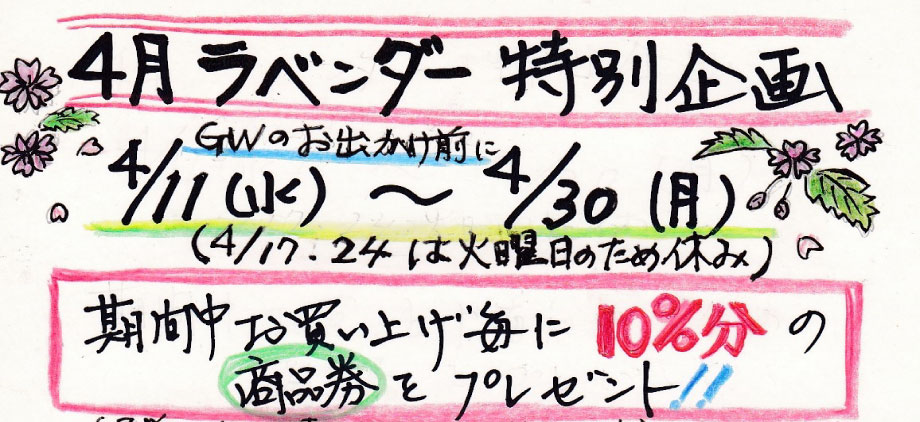 4月 ラベンダー 特別企画
GWのお出かけ前に
4/11(水) 〜 4/30(月)
(4/17.24は火曜日のため休み)
期間中 お買い上げ毎に 10%分の
商品券をプレゼント!!